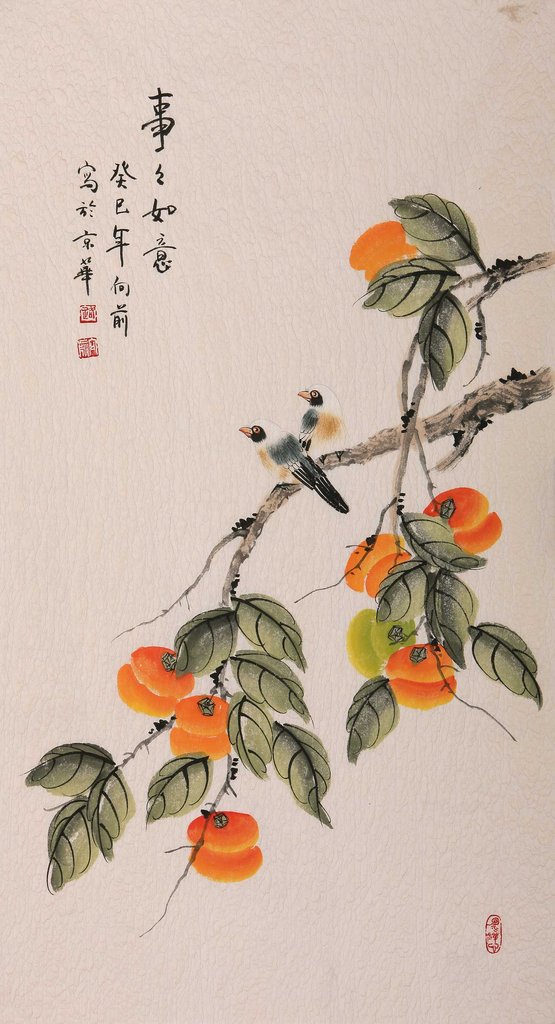 事々如意
癸巳年向前
寫於京華